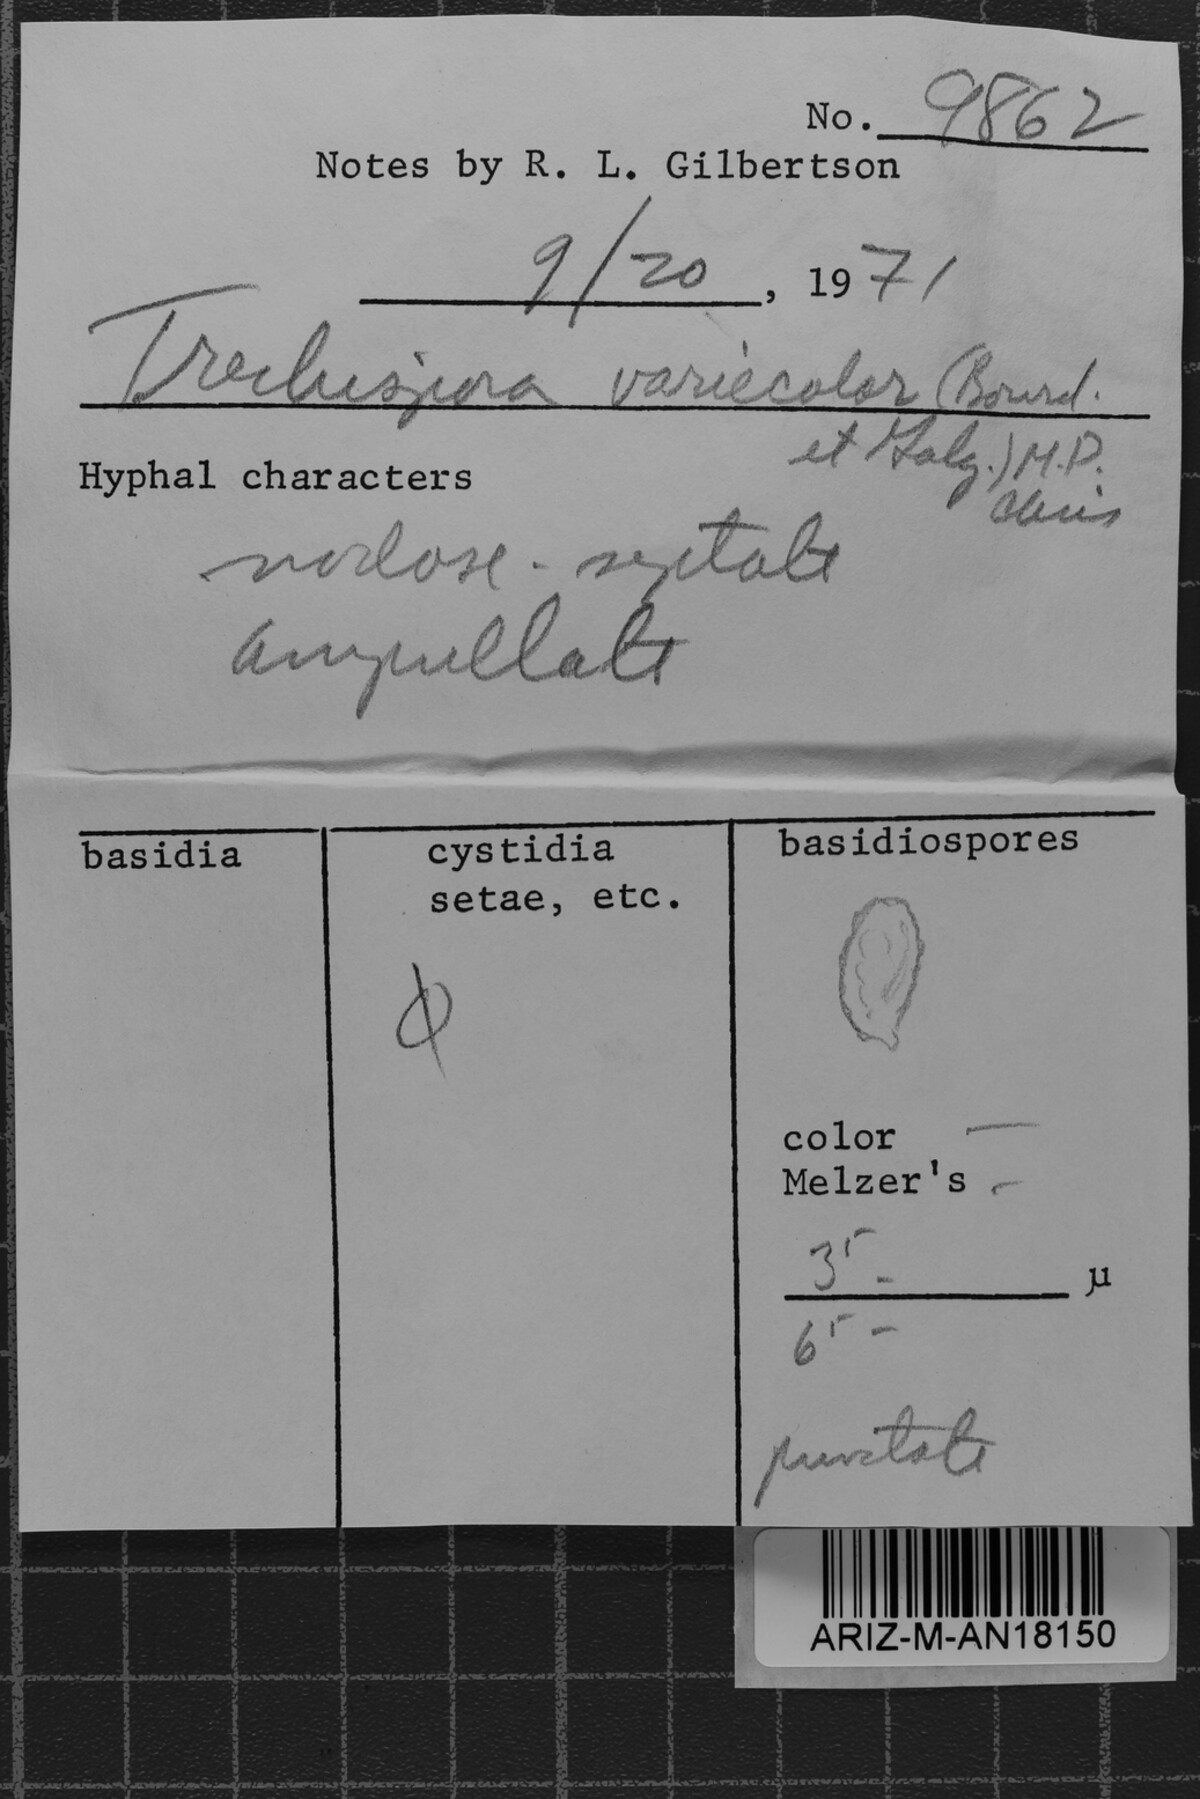 No. 9862
Notes by R. L. Gilbertson
9/20, 1971
Trechispora variecolor (Bourd.
et Galz.) M.P.
Chris
Hyphal characters
nodose-septate
ampullate
basidia
cystidia
setae, etc.
φ
basidiospores
color —
Melzer's –
35 – µ
65 –
punctate
ARIZ-M-AN18150